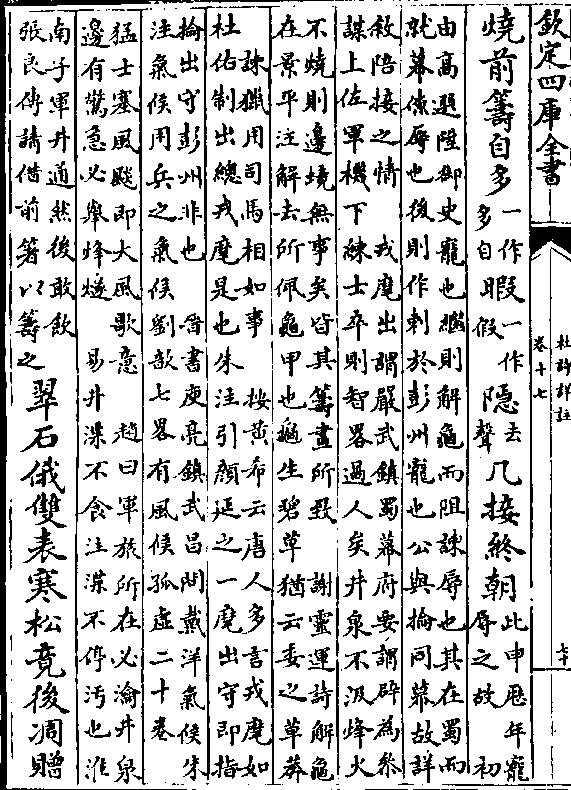 欽定四庫全書
杜詩詳註
卷十七
燒前籌自多一作多自暇一作假隱去聲几接終朝此申歷年寵辱之故 初
由高選陞御史寵也繼則解龜而阻諫辱也其在蜀而
就幕僚辱也後則作刺於彭州寵也公與掄同幕故詳
敘陪接之情 戎麾出謂嚴武鎮蜀幕府要謂辟為參
謀上佐軍機下練士卒則智畧過人矣井泉不汲烽火
不燒則邊境無事矣皆其籌畫所致 謝靈運詩解龜
在景平注解去所佩龜甲也龜生碧草猶云委之草莽
諫獵用司馬相如事 按黃希云唐人多言戎麾如
杜佑制出總戎麾是也朱注引顔延之一麾出守即指
掄出守彭州非也 晉書庾亮鎮武昌問戴洋氣候朱
注氣候用兵之氣候劉歆七畧有風候孤虛二十卷
猛士塞風飈即大風歌意 趙曰軍旅所在必瀹井泉
邊有驚急必舉烽燧 易井渫不食注渫不停汚也淮
南子軍井通然後敢飲
張良傳請借前箸以籌之 翠石俄雙表寒松竟後凋贈